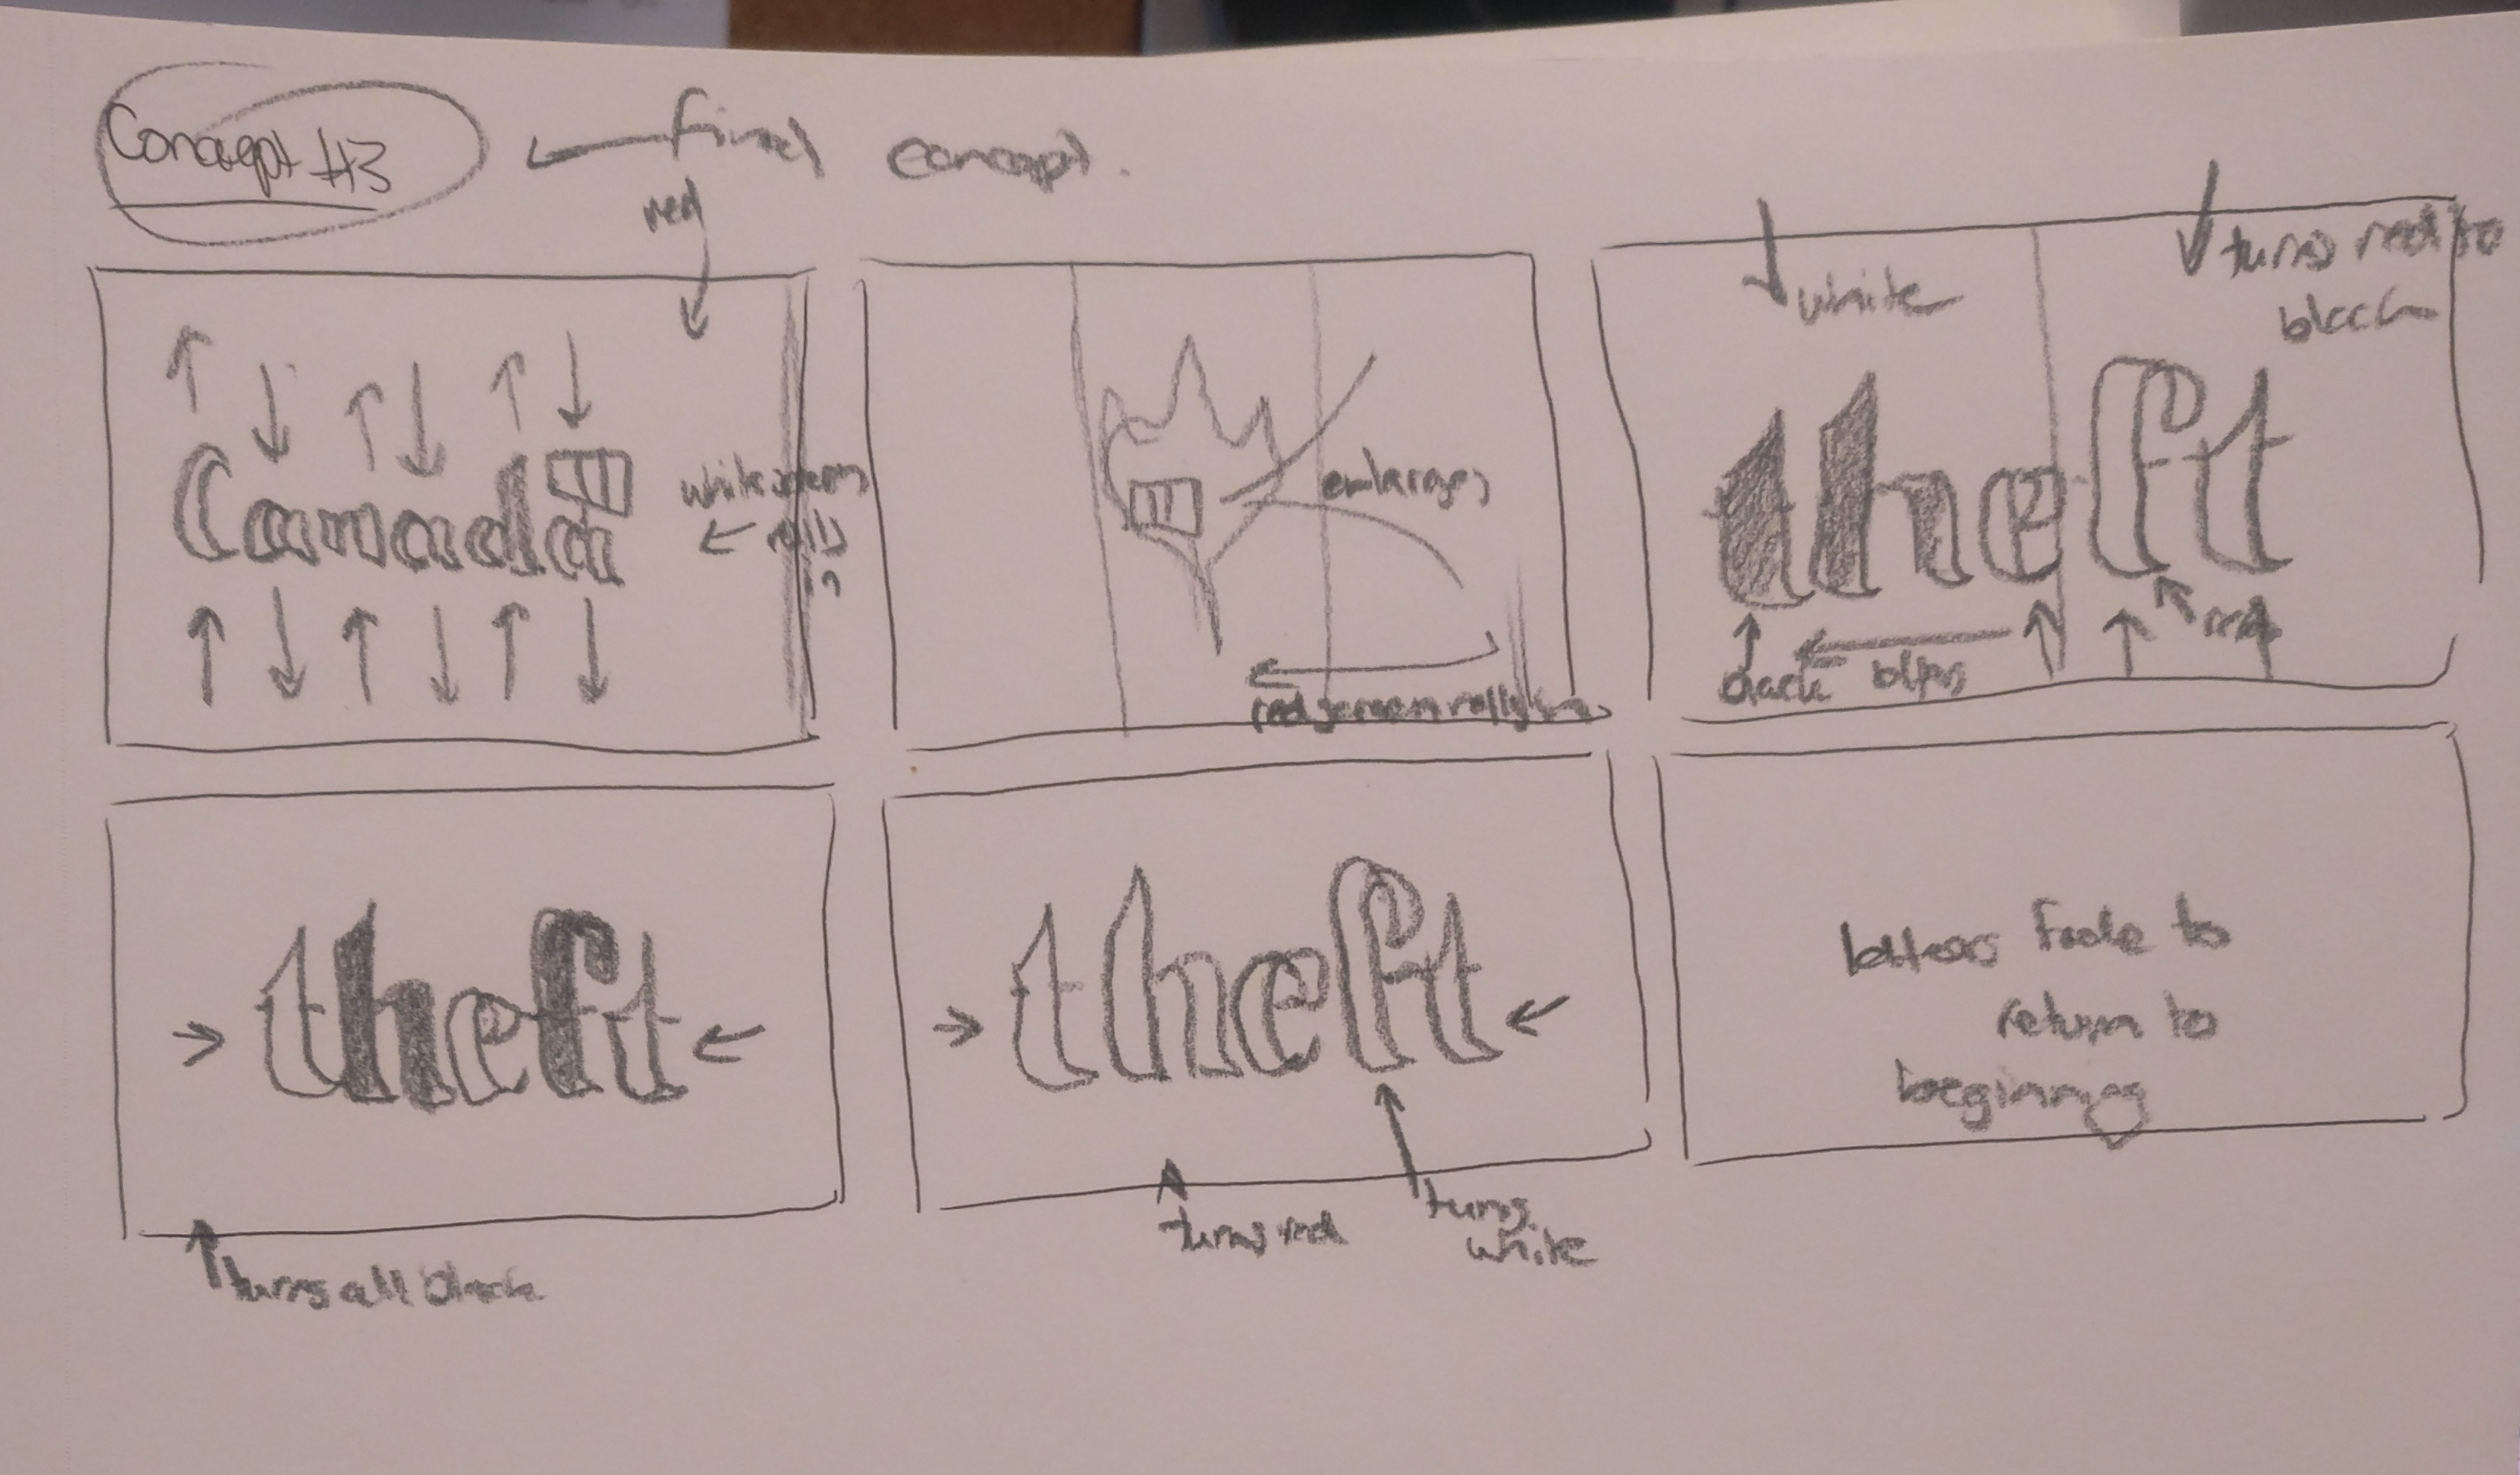 Concept #3
final concept.
red
Canada
white screen
rolls
in
enlarges
red screen rolls in
white
turns red to
black
theft
black
red
theft
turns all black
theft
turns red
turns
white
letters fade to
return to
beginning